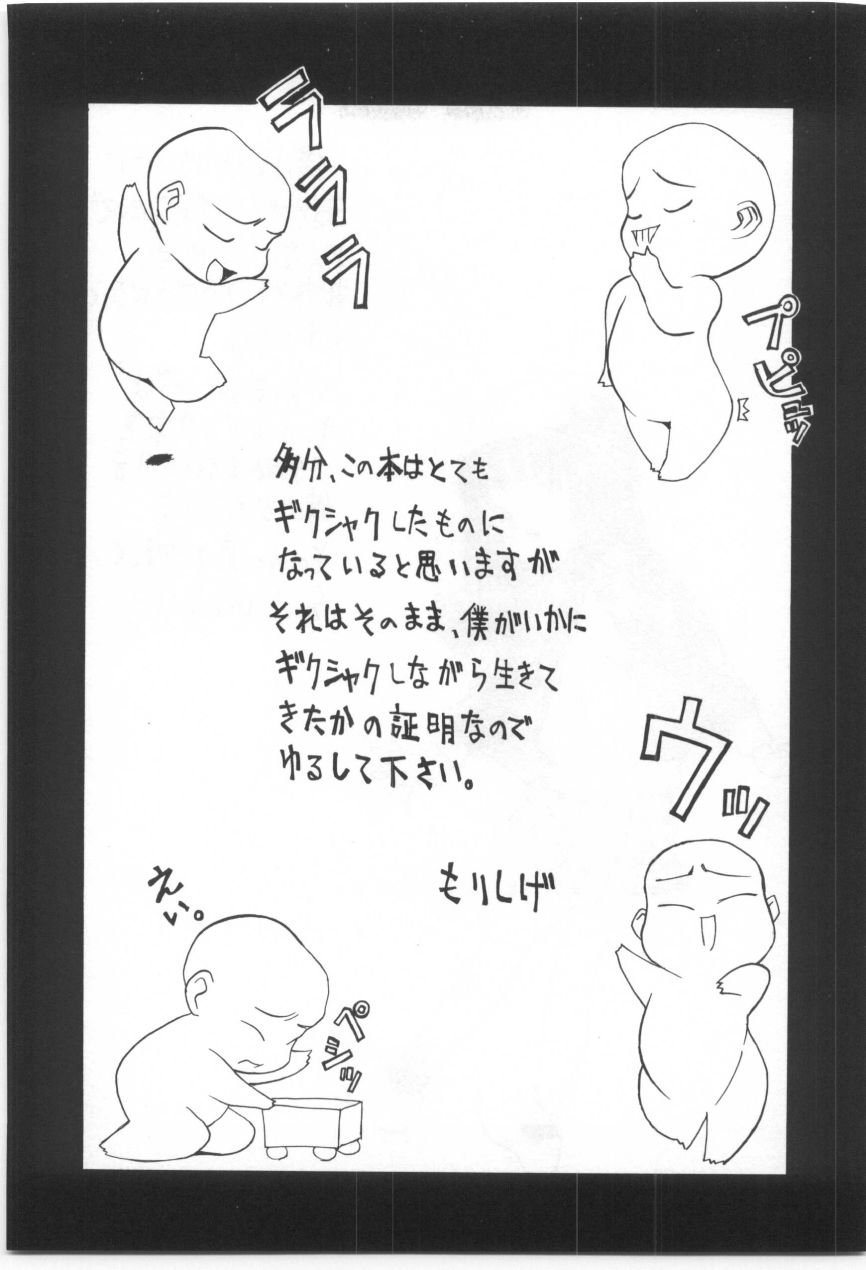 ラララララ
プ
プ
多分、この本はとても
ギクシャクしたものに
なっていると思いますが
それはそのまま、僕がいかに
ギクシャクしながら生きて
きたかの証明なので
ゆるして下さい。
もりしげ
ウッ
えい。
ペシッ